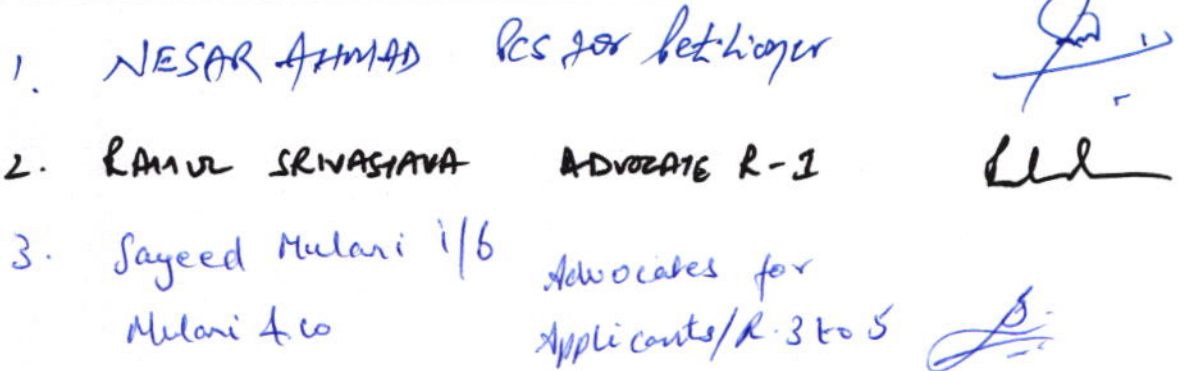 1. NESAR AHMAD PCS for Petitioner
2. RAHUL SRIVASTAVA ADVOCATE R-1
3. Sayeed Mulani i/b Advocates for
Mulani & co Applicants/R.3 to 5